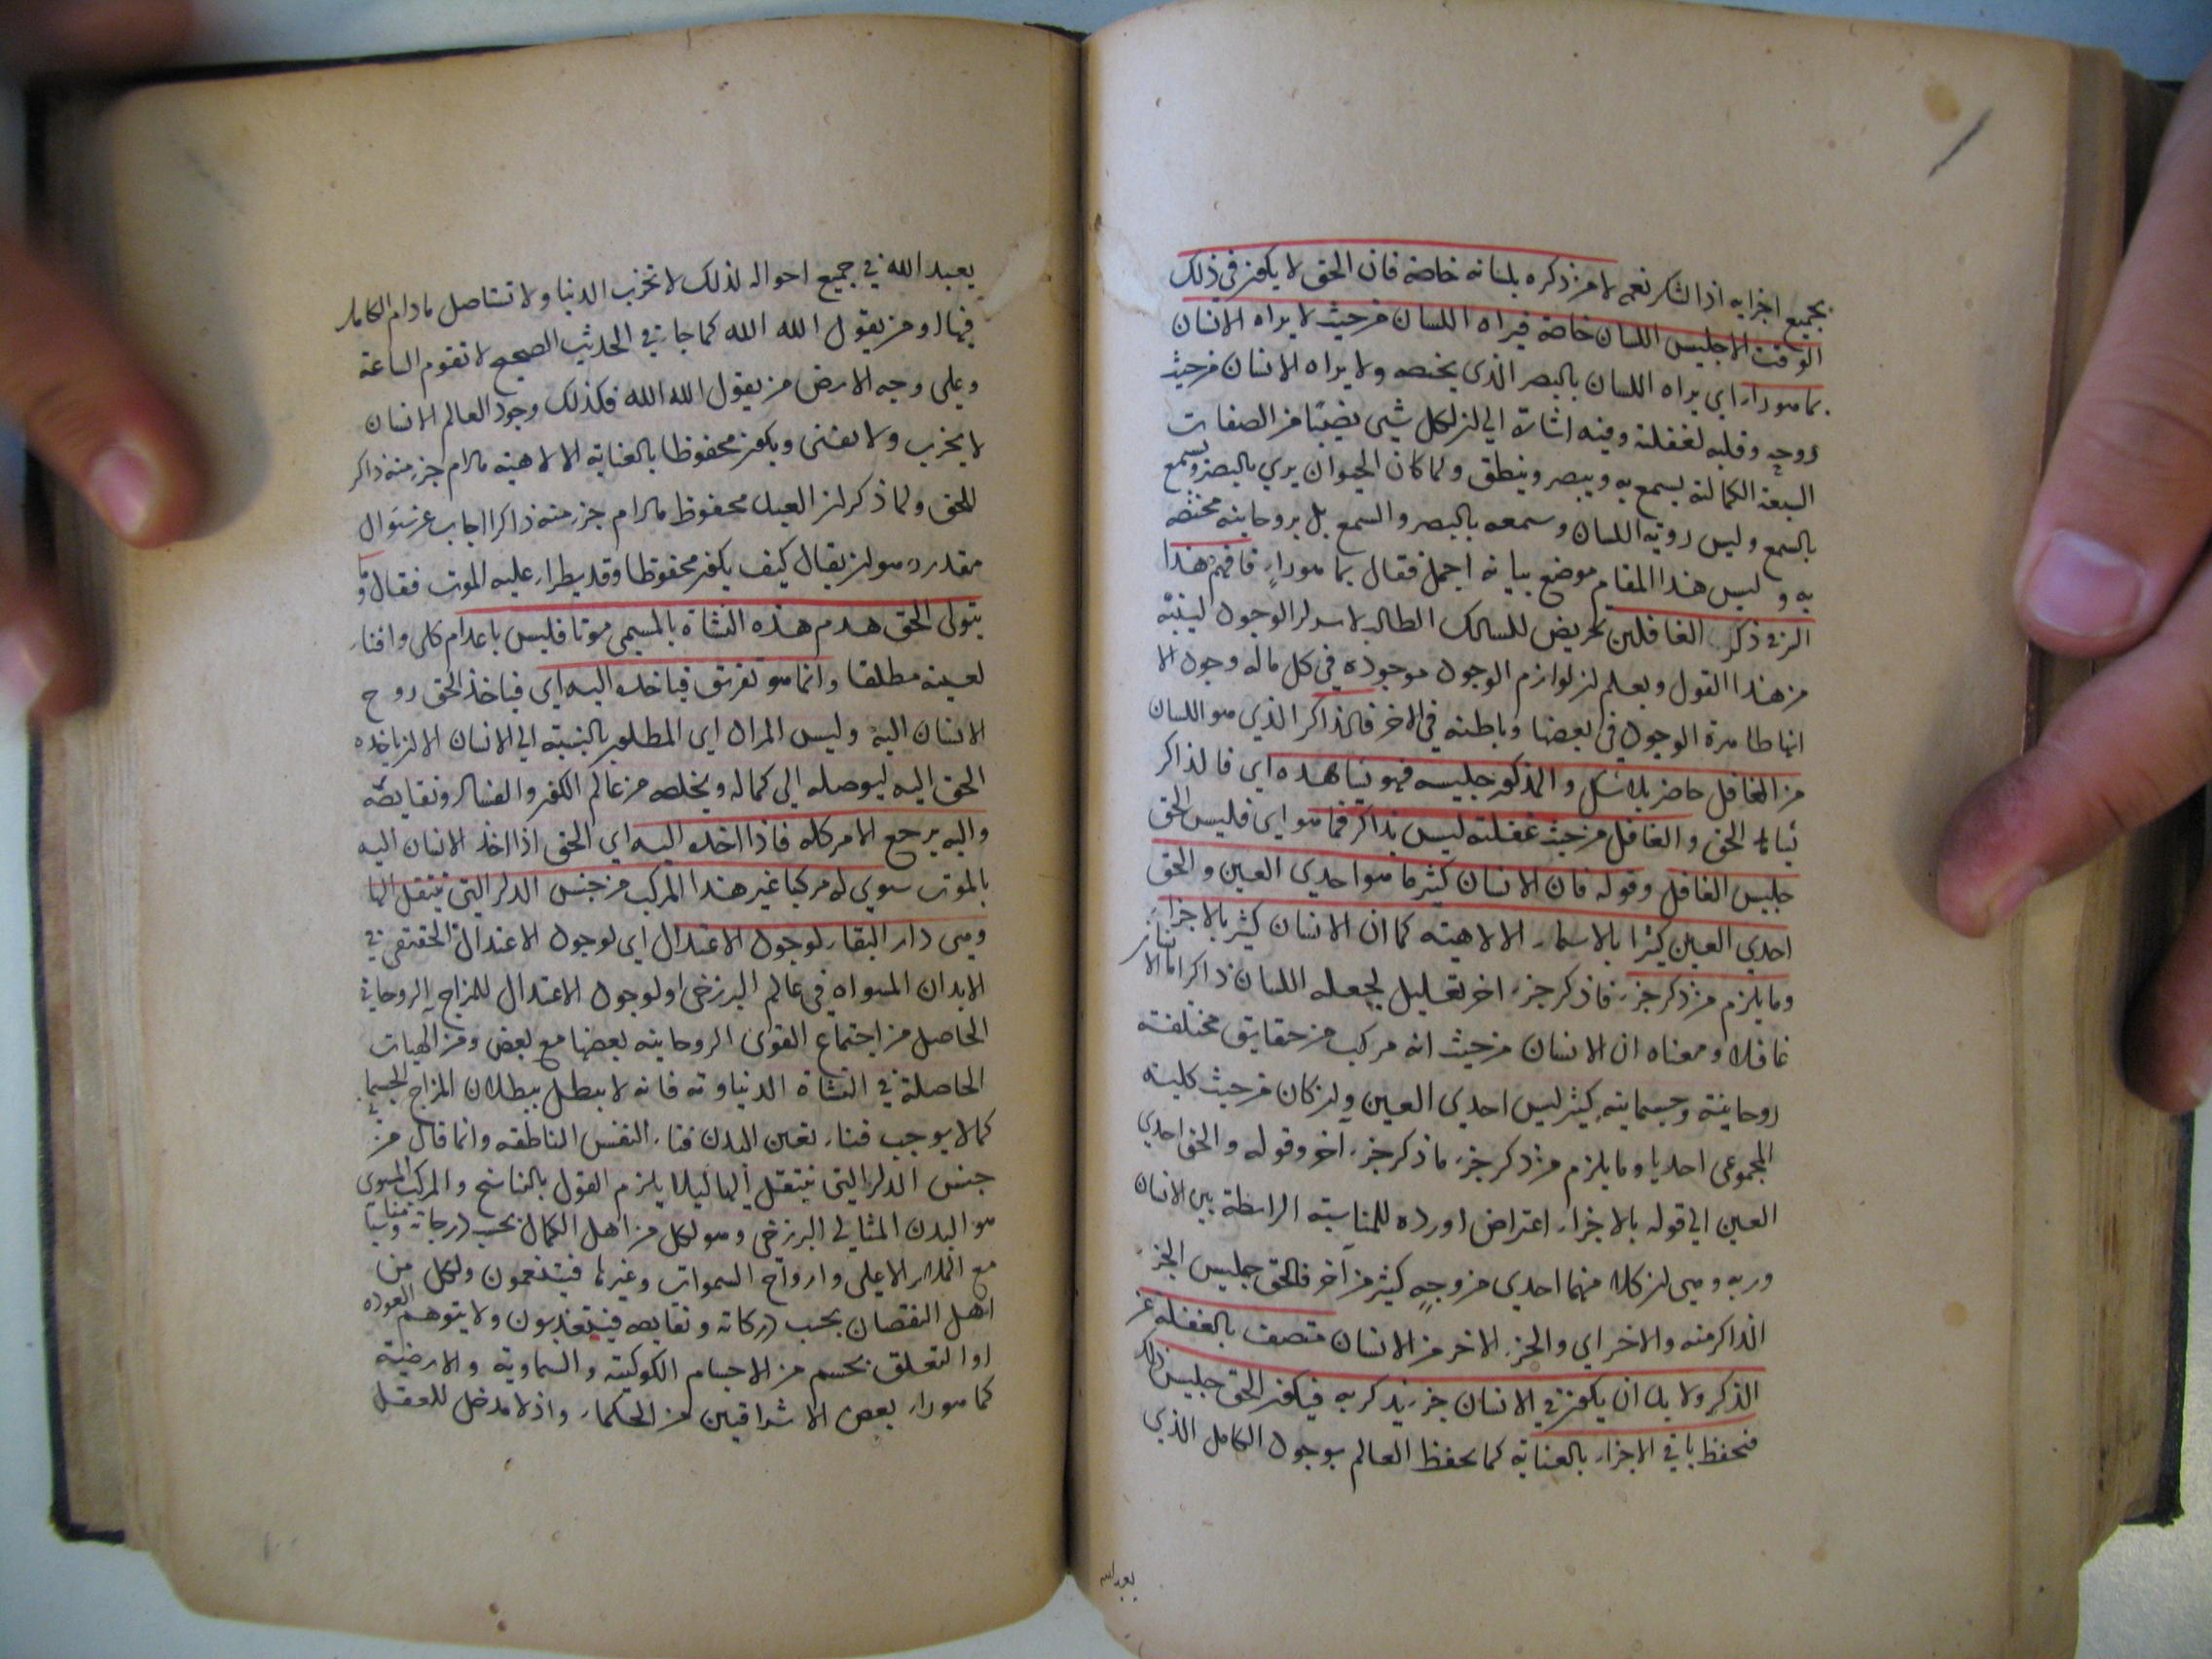 بجميع اجزايه اذ الشكر نعمه لا من ذكره بلسانه خاصة فان الحق لا يكون في ذلك
الوقت الا جليس اللسان خاصة فيراه اللسان من حيث لا يراه الانسان
بما هو راء اي يراه اللسان بالبصر الذي يخصه ولا يراه الانسان من حيث
روحه وقلبه لغفلته وفيه اشارة الي ان لكل شيء نصيبا من الصفات
السبعة الكمالية يسمع به ويبصر وينطق ولما كان الحيوان يري بالبصر ويسمع
بالسمع وليس روية اللسان وسمعه بالبصر والسمع بل بروحانية مختصة
به و ليس هذا المقام موضع بيانه اجمل فقال بما هو راء فافهم هذا
السر في ذكر الغافلين تحريض للسالك الطالب لاسرار الوجود لينتبه
من هذا القول ويعلم ان لوازم الوجود موجودة في كل ماله وجود الا
انها ظاهرة الوجود في بعضها وباطنة في الاخر فالذاكر الذي هو اللسان
من الغافل حاضر بلا شك والمذكور جليسه فهو يشاهده اي فالذاكر
يشاهد الحق والغافل من حيث غفلته ليس بذاكر فما هو اي فليس الحق
جليس الغافل وقوله فان الانسان كثير ما هو احدي العين والحق
احدي العين كثير بالاسماء الالاهية كما ان الانسان كثير بالاجزاء
وما يلزم من ذكر جزء ما ذكر جزء اخر تعليل لجعله اللسان ذاكرا والانسان
غافلا ومعناه ان الانسان من حيث انه مركب من حقايق مختلفة
روحانية وجسمانية كثير ليس احدي العين وان كان من حيث كليته
المجموعي احديا وما يلزم من ذكر جزء ما ذكر جزء آخر وقوله والحق احدي
العين الي قوله بالاجزاء اعتراض اورده للمناسبة الرابطة بين الانسان
وربه وهي ان كلا منهما احدي من وجه كثير من آخر فالحق جليس الجزء
الذاكر منه والاخر اي والجزء الاخر من الانسان متصف بالغفلة عن
الذكر ولا بد ان يكون في الانسان جزء يذكر به فيكون الحق جليس ذلك
فيحفظ باقي الاجزاء بالعناية كما يحفظ العالم بوجود الكامل الذي
يعبد الله
يعبد الله في جميع احواله لذلك لا تخرب الدنيا ولا تستاصل مادام الكامل
فيها ومن يقول الله الله كما جاء في الحديث الصحيح لا تقوم الساعة
وعلي وجه الارض من يقول الله الله فكذلك وجود العالم الانسان
لا يخرب ولا يفني ويكون محفوظا بالعناية الالاهية مادام جزء منه ذاكر
للحق ولما ذكر ان العبد محفوظ مادام جزء منه ذاكرا اجاب عن سوال
مقدر وهو ان يقال كيف يكون محفوظا وقد يطراء عليه الموت فقال وما
يتولي الحق هدم هذه النشاة بالمسمي موتا فليس باعدام كلي وافناء
لعينه مطلقا وانما هو تفريق فياخذه اليه اي فياخذ الحق روح
الانسان اليه وليس المراد اي المطلوب بالنسبة الي الانسان الا ان ياخذه
الحق اليه ليوصله الي كماله ويخلصه من عالم الكون والفساد ونقايصه
واليه يرجع الامر كله فاذا اخذه اليه اي الحق اذا اخذ الانسان اليه
بالموت سوي له مركبا غير هذا المركب من جنس الدار التي ينتقل اليها
وهي دار البقاء لوجود الاعتدال اي لوجود الاعتدال الحقيقي في
الابدان المسواه في عالم البرزخي او لوجود الاعتدال للمزاج الروحاني
الحاصل من اجتماع القوي الروحانية بعضها مع بعض ومن الهيات
الحاصلة في النشاة الدنياوية فانه لا يبطل ببطلان المزاج الجسماني
كما لا يوجب فناء تعين البدن فناء النفس الناطقه وانما قال من
جنس الدار التي ينتقل اليها ليلا يلزم القول بالتناسخ والمركب المسوي
هو البدن المثالي البرزخي وهو لكل من اهل الكمال بحسب درجاته
مع الملاء الاعلي وارواح السموات وغيرها فيتنعمون ولكل من
اهل النقصان بحسب دركاته ونقايصه فيتعذبون ولا يتوهم العودة
او التعلق بجسم من الاجسام الكوكبية والسماوية والارضية
كما هو راء بعض الاشراقيين من الحكماء واذ لا مدخل للعقل